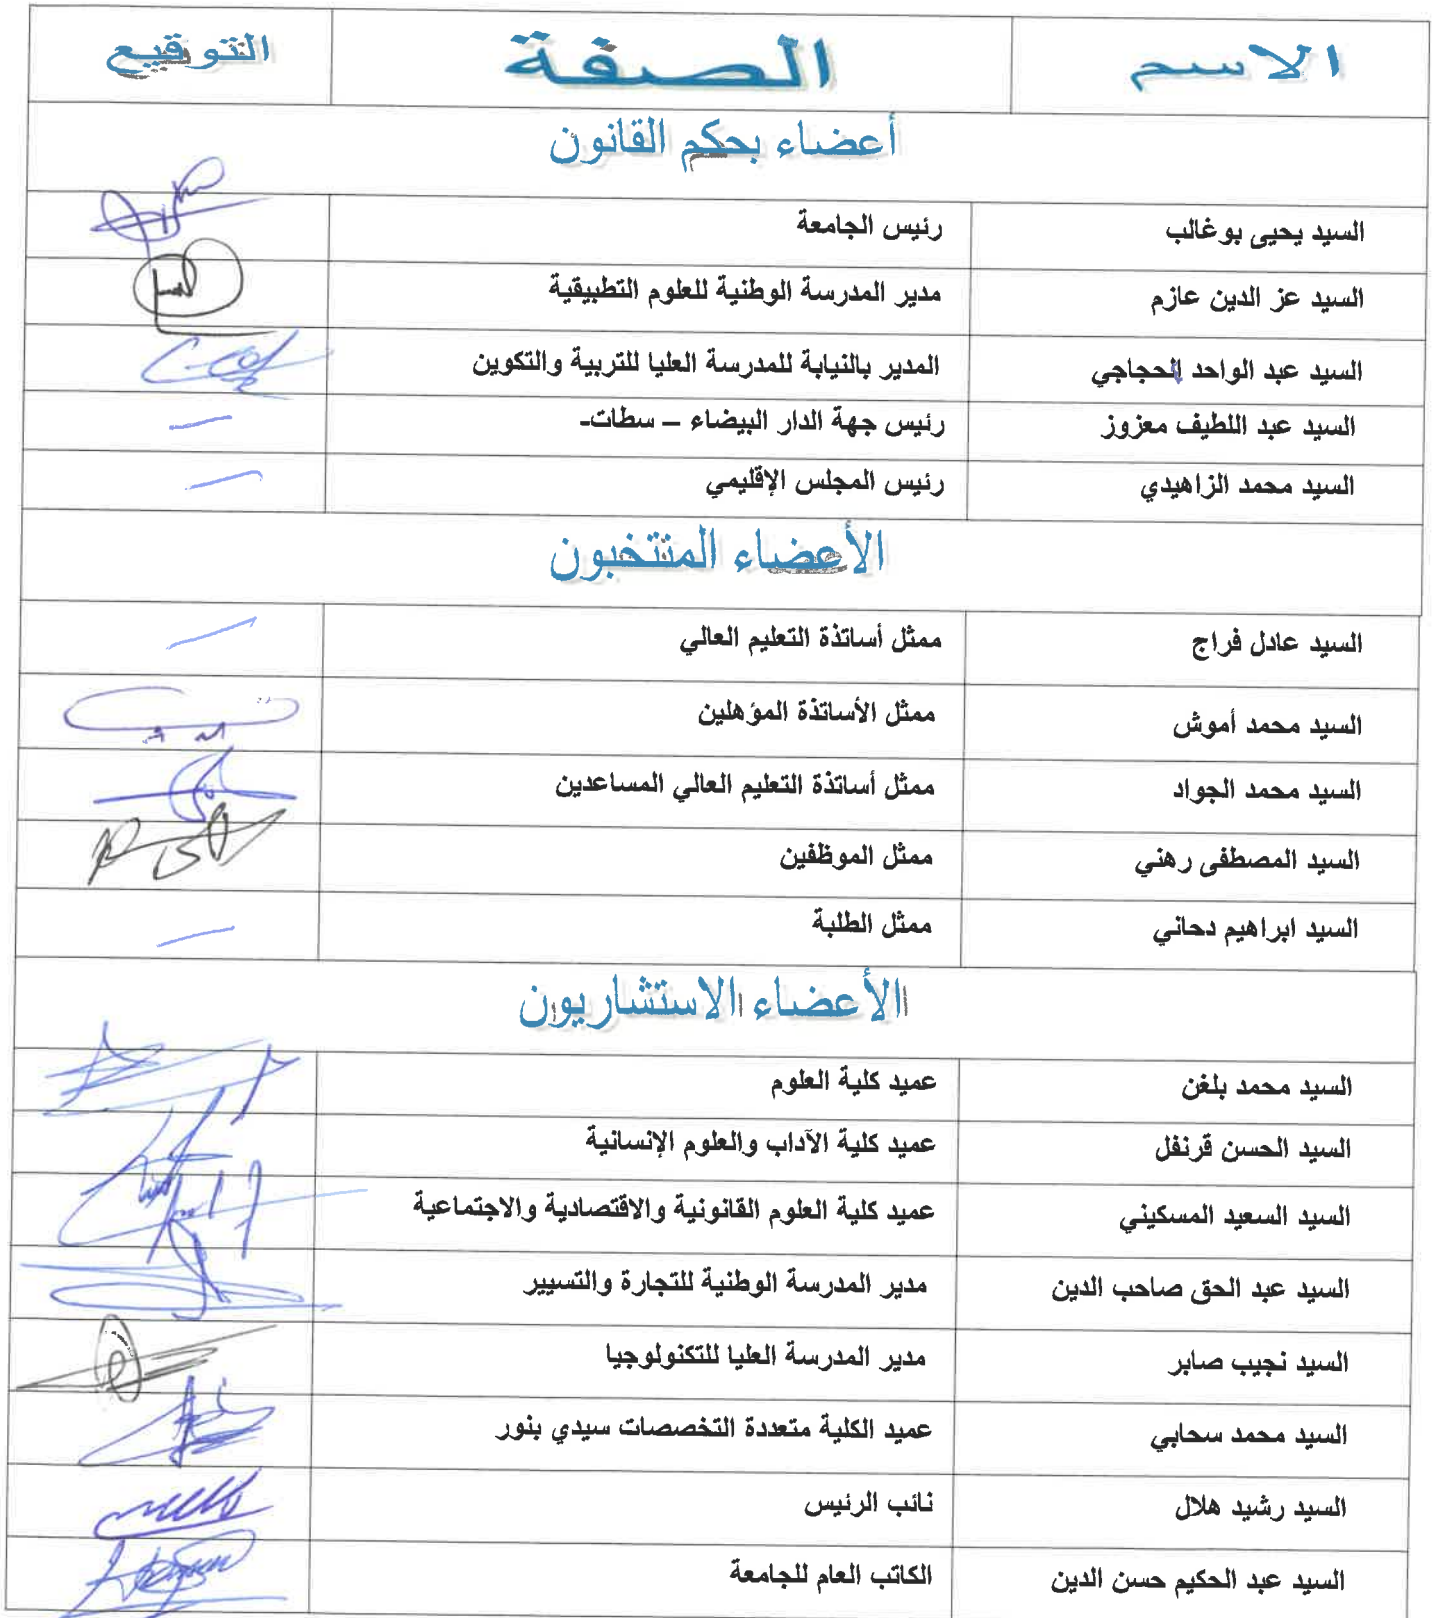 الاسم الصفة التوقيع
أعضاء بحكم القانون
السيد يحيى بوغالب رئيس الجامعة
السيد عز الدين عازم مدير المدرسة الوطنية للعلوم التطبيقية
السيد عبد الواحد الحجاجي المدير بالنيابة للمدرسة العليا للتربية والتكوين
السيد عبد اللطيف معزوز رئيس جهة الدار البيضاء – سطات-
السيد محمد الزاهيدي رئيس المجلس الإقليمي
الأعضاء المنتخبون
السيد عادل فراج ممثل أساتذة التعليم العالي
السيد محمد أموش ممثل الأساتذة المؤهلين
السيد محمد الجواد ممثل أساتذة التعليم العالي المساعدين
السيد المصطفى رهني ممثل الموظفين
السيد ابراهيم دحاني ممثل الطلبة
الأعضاء الاستشاريون
السيد محمد بلغن عميد كلية العلوم
السيد الحسن قرنفل عميد كلية الآداب والعلوم الإنسانية
السيد السعيد المسكيني عميد كلية العلوم القانونية والاقتصادية والاجتماعية
السيد عبد الحق صاحب الدين مدير المدرسة الوطنية للتجارة والتسيير
السيد نجيب صابر مدير المدرسة العليا للتكنولوجيا
السيد محمد سحابي عميد الكلية متعددة التخصصات سيدي بنور
السيد رشيد هلال نائب الرئيس
السيد عبد الحكيم حسن الدين الكاتب العام للجامعة